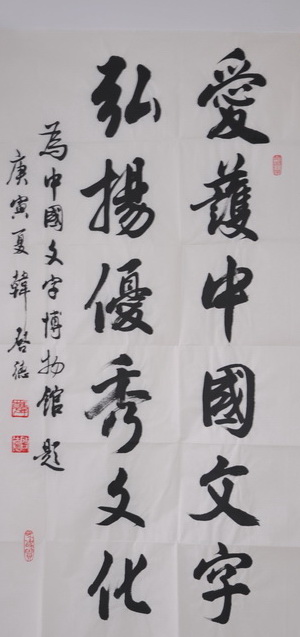 愛護中國文字
弘揚優秀文化
為中國文字博物館題
庚寅夏 韓啓德